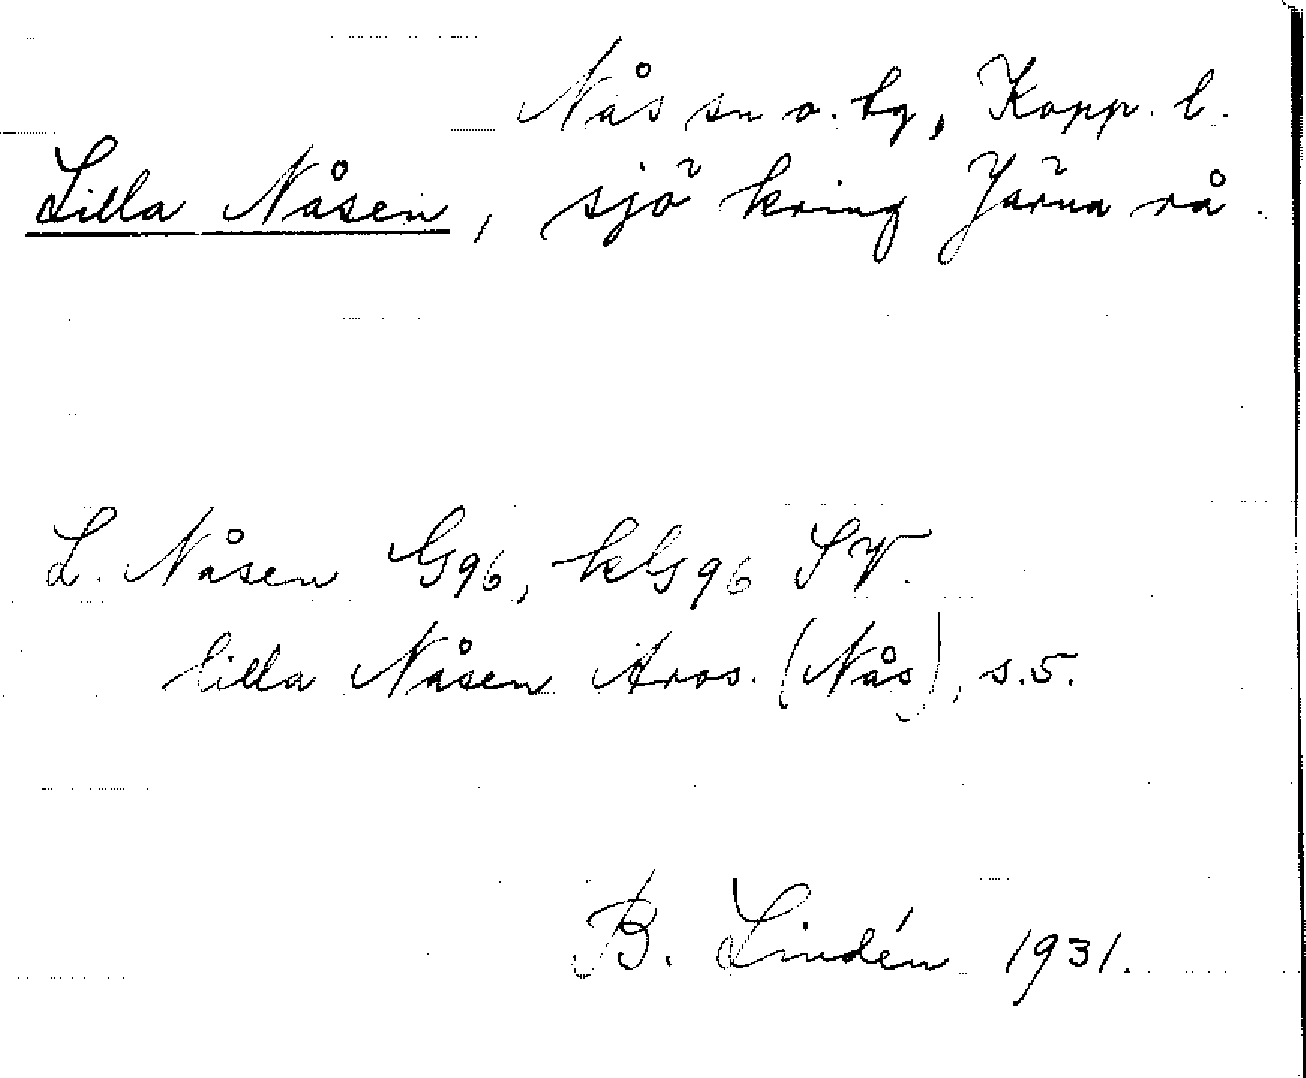 Nås sn o. bg, Kopp. l.
Lilla Nåsen, sjö kring Järna rå.
L. Nåsen G96, kG96 SV.
lilla Nåsen Aros. (Nås), s.5.
B. Lindén 1931.